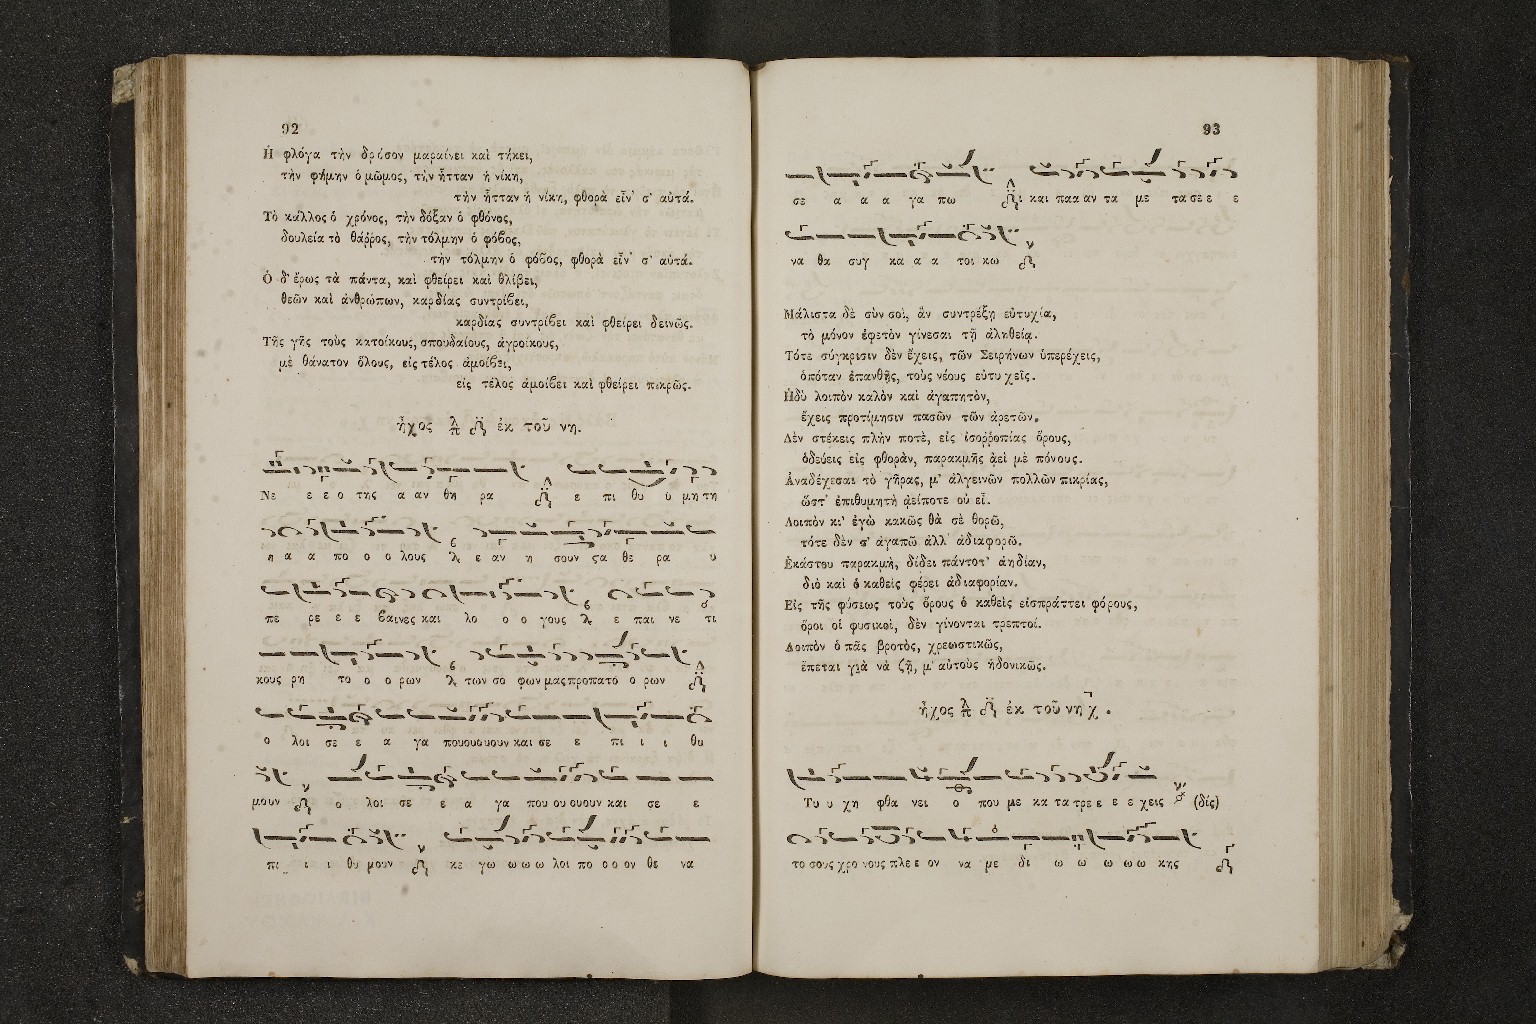 92
Ἡ φλόγα τὴν δρόσον μαραίνει καὶ τήκει,
τὴν φήμην ὁ μῶμος, τὴν ἧτταν ἡ νίκη,
τὴν ἧτταν ἡ νίκη, φθορὰ εἶν' σ' αὐτά.
Τὸ κάλλος ὁ χρόνος, τὴν δόξαν ὁ φθόνος,
δουλεία τὸ θάῤῥος, τὴν τόλμην ὁ φόβος,
τὴν τόλμην ὁ φόβος, φθορὰ εἶν' σ' αὐτά.
Ὁ δ' ἔρως τὰ πάντα, καὶ φθείρει καὶ θλίβει,
θεῶν καὶ ἀνθρώπων, καρδίας συντρίβει,
καρδίας συντρίβει καὶ φθείρει δεινῶς.
Τῆς γῆς τοὺς κατοίκους, σπουδαίους, ἀγροίκους,
μὲ θάνατον ὅλους, εἰς τέλος ἀμοίβει,
εἰς τέλος ἀμοίβει καὶ φθείρει πικρῶς.
ἦχος ἐκ τοῦ νη.
Νε ε ε ο της α αν θη ρα ε πι θυ υ μη τη
η α α πο ο ο λους λ ε αν η σουν ϛα θε ρα υ
πε ρε ε ε βαινες και λο ο ο γους λ ε παι νε τι
κους ρη το ο ο ρων λ των σο φων μας προπατο ο ρων
ο λοι σε ε α γα πουουουουν και σε ε πι ι ι θυ
μουν ο λοι σε ε α γα που ου ουουν και σε ε
πι ι ι θυ μουν κε γω ω ω ω λοι πο ο ο ον θε να
93
σε α α α γα πω και πα α αν τα με τα σε ε ε
να θα συγ κα α α τοι κω
Μάλιστα δὲ σὺν σοὶ, ἂν συντρέξῃ εὐτυχία,
τὸ μόνον ἐφετὸν γίνεσαι τῇ ἀληθείᾳ.
Τότε σύγκρισιν δὲν ἔχεις, τῶν Σειρήνων ὑπερέχεις,
ὁπόταν ἐπανθῇς, τοὺς νέους εὐτυχεῖς.
Ἡδὺ λοιπὸν καλὸν καὶ ἀγαπητὸν,
ἔχεις προτίμησιν πασῶν τῶν ἀρετῶν.
Δὲν στέκεις πλὴν ποτὲ, εἰς ἰσοῤῥοπίας ὅρους,
ὁδεύεις εἰς φθορὰν, παρακμῆς ἀεὶ μὲ πόνους.
Ἀναδέχεσαι τὸ γῆρας, μ' ἀλγεινῶν πολλῶν πικρίας,
ὥστ' ἐπιθυμητὴ ἀείποτε οὐ εἶ.
Λοιπὸν κι' ἐγὼ κακῶς θὰ σὲ θορῶ,
τότε δὲν σ' ἀγαπῶ ἀλλ' ἀδιαφορῶ.
Ἑκάστου παρακμὴ, δίδει πάντοτ' ἀηδίαν,
διὸ καὶ ὁ καθεὶς φέρει ἀδιαφορίαν.
Εἰς τῆς φύσεως τοὺς ὅρους ὁ καθεὶς εἰσπράττει φόρους,
ὅροι οἱ φυσικοὶ, δὲν γίνονται τρεπτοί.
Λοιπὸν ὁ πᾶς βροτὸς, χρεωστικῶς,
ἕπεται γιὰ νὰ ζῇ, μ' αὐτοὺς ἡδονικῶς.
ἦχος ἐκ τοῦ νη χ.
Τυ υ χη φθα νει ο που με κα τα τρε ε ε ε χεις (δίς)
το σους χρο νους πλε ε ον να με δι ω ω ω ω ω κης